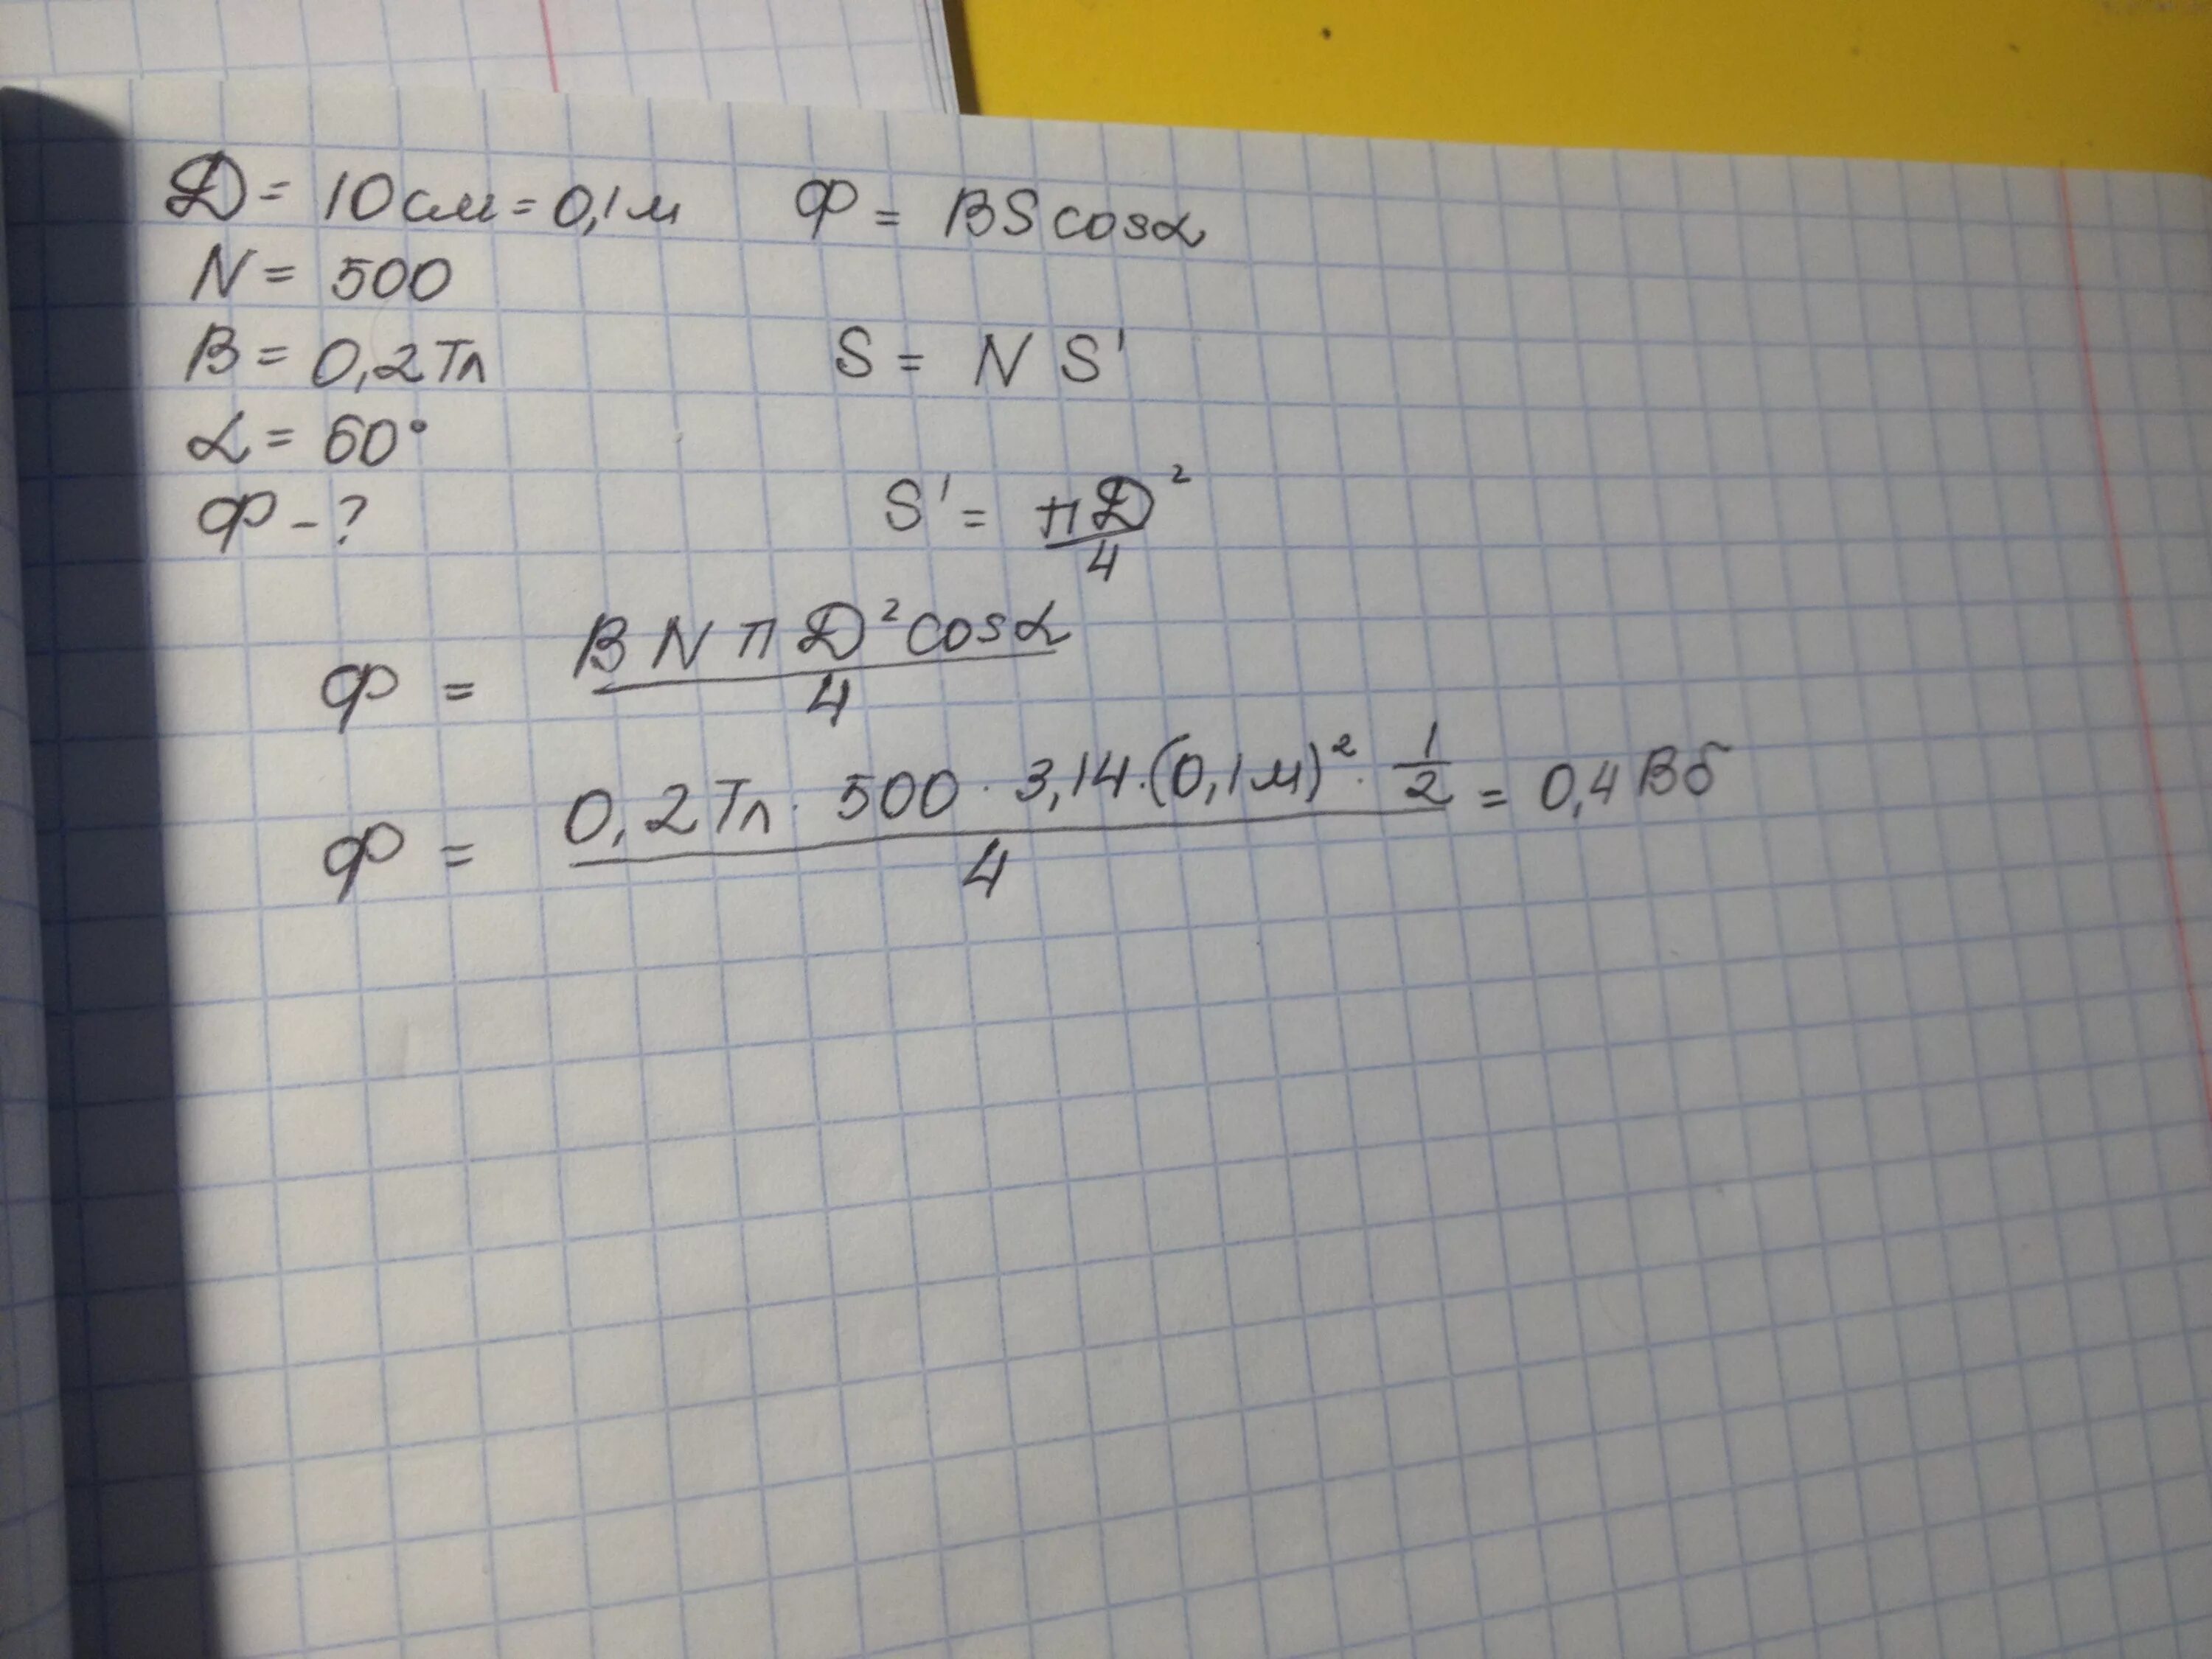 D = 10 см = 0,1 м Φ = BS cosα
N = 500
B = 0,2 Тл S = N S'
α = 60°
Φ - ? S' = πD²/4
Φ = BNπD² cosα / 4
Φ = 0,2 Тл · 500 · 3,14 · (0,1 м)² · 1/2 / 4 = 0,4 Вб